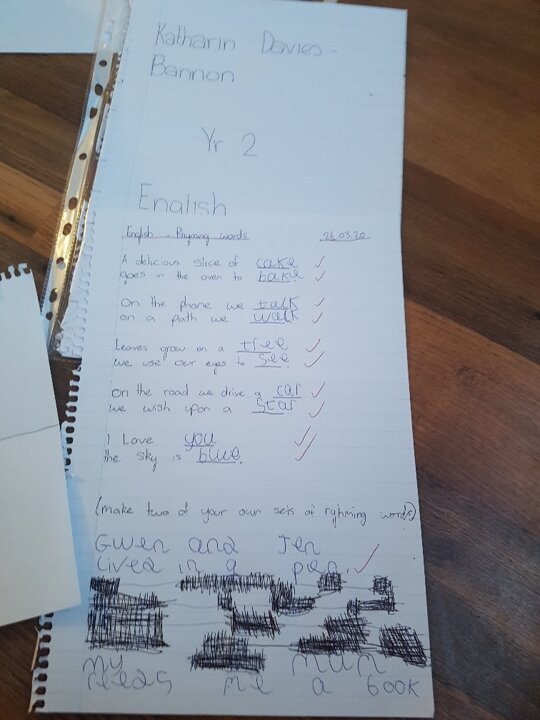 Katharin Davies-
Bannon
Yr 2
Enalish
English - Rhyming words 26.03.20
A delicious slice of cake
goes in the oven to bake.
On the phone we talk
on a path we walk
Leaves grow on a tree
we use our eyes to see.
On the road we drive a car
we wish upon a star
I Love you
the sky is blue.
(make two of your own sets of ryhming words)
Gwen and Jen
Lived in a pen.
my mum
reads me a book